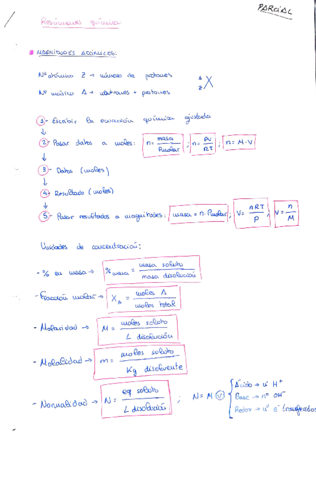 PARCIAL
Resúmenes química
* MAGNITUDES ATÓMICAS:
Nº atómico Z → número de protones
A
Z X
Nº másico A → neutrones + protones
1- Escribir la ecuación química ajustada
↓
2- Pasar datos a moles: n = masa / Pmolar ; n = PV / RT ; n = M·V
↓
3- Datos (moles)
↓
4- Resultado (moles)
↓
5- Pasar resultados a magnitudes: masa = n·Pmolar ; V = nRT / P ; V = n / M
Unidades de concentración:
- % en masa → % masa = masa soluto / masa disolución
- Fracción molar → XA = moles A / moles total
- Molaridad → M = moles soluto / L disolución
- Molalidad → m = moles soluto / Kg disolvente
- Normalidad → N = eq soluto / L disolución ; N = M · V
Ácido → nº H⁺
Base → nº OH⁻
Redox → nº e⁻